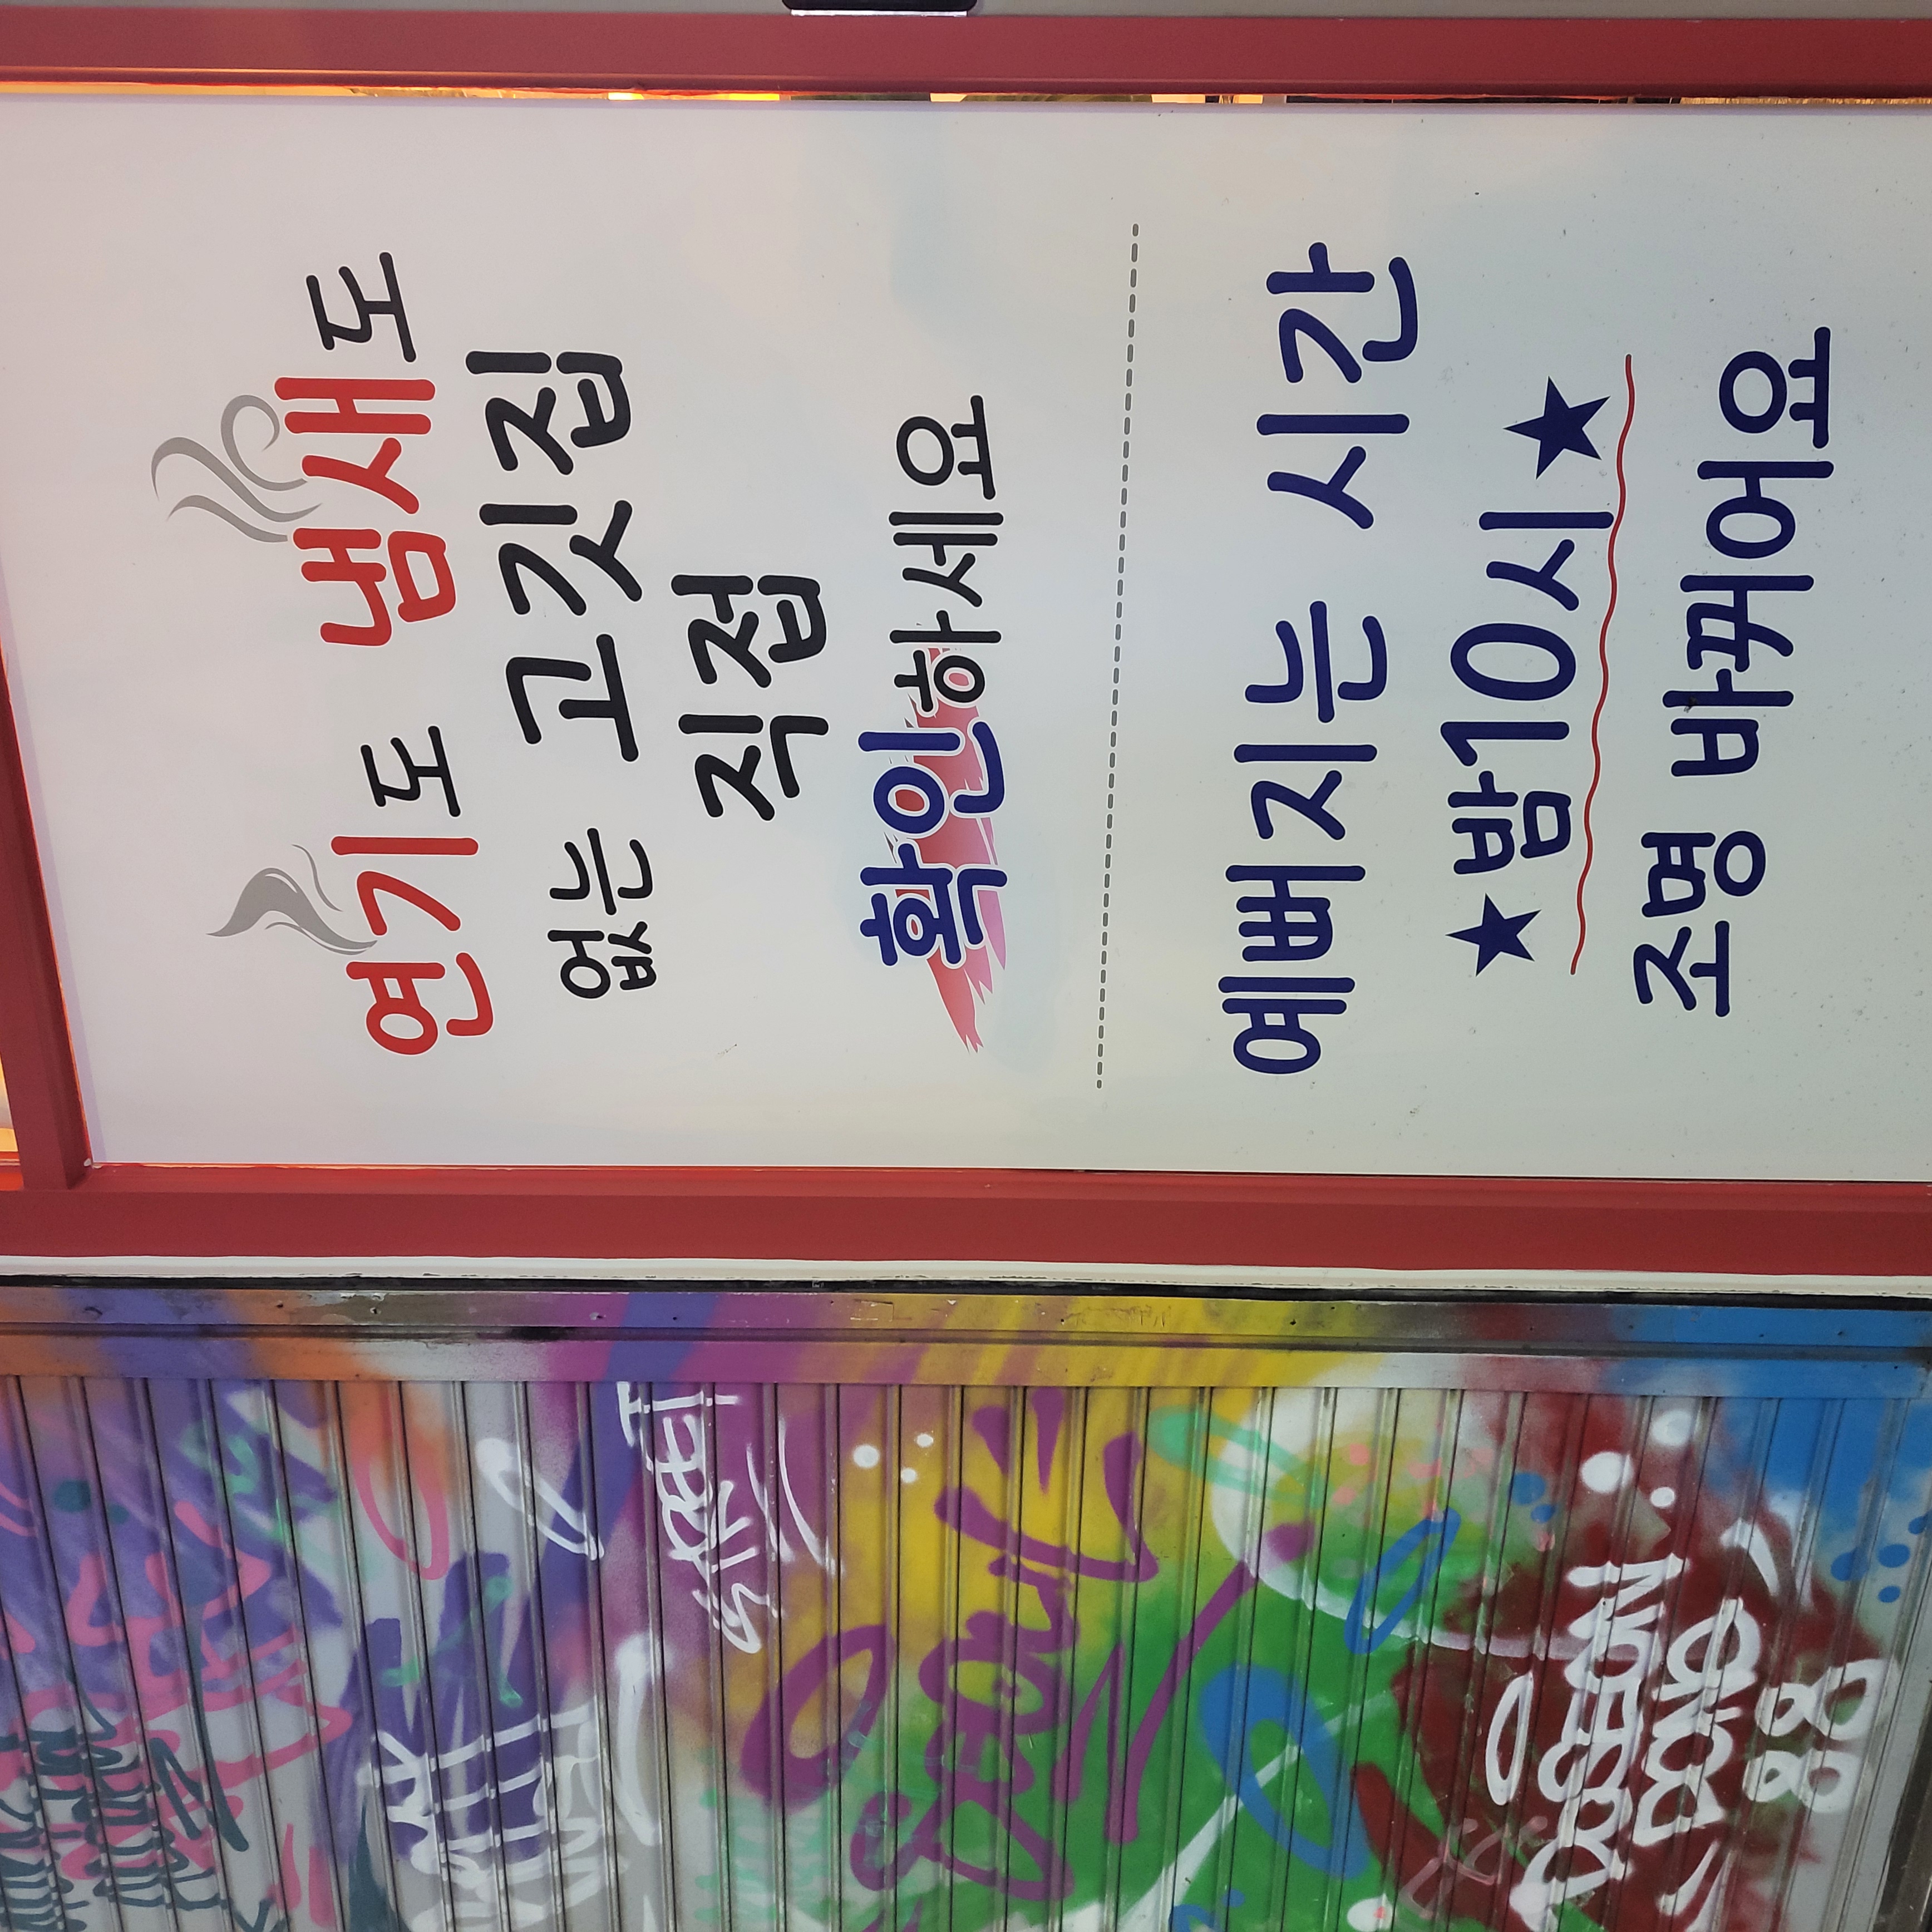 연기도 냄새도
없는 고깃집
직접
확인하세요
예뻐지는 시간
★밤10시★
조명 바꿔어요
STREET
SEOUL